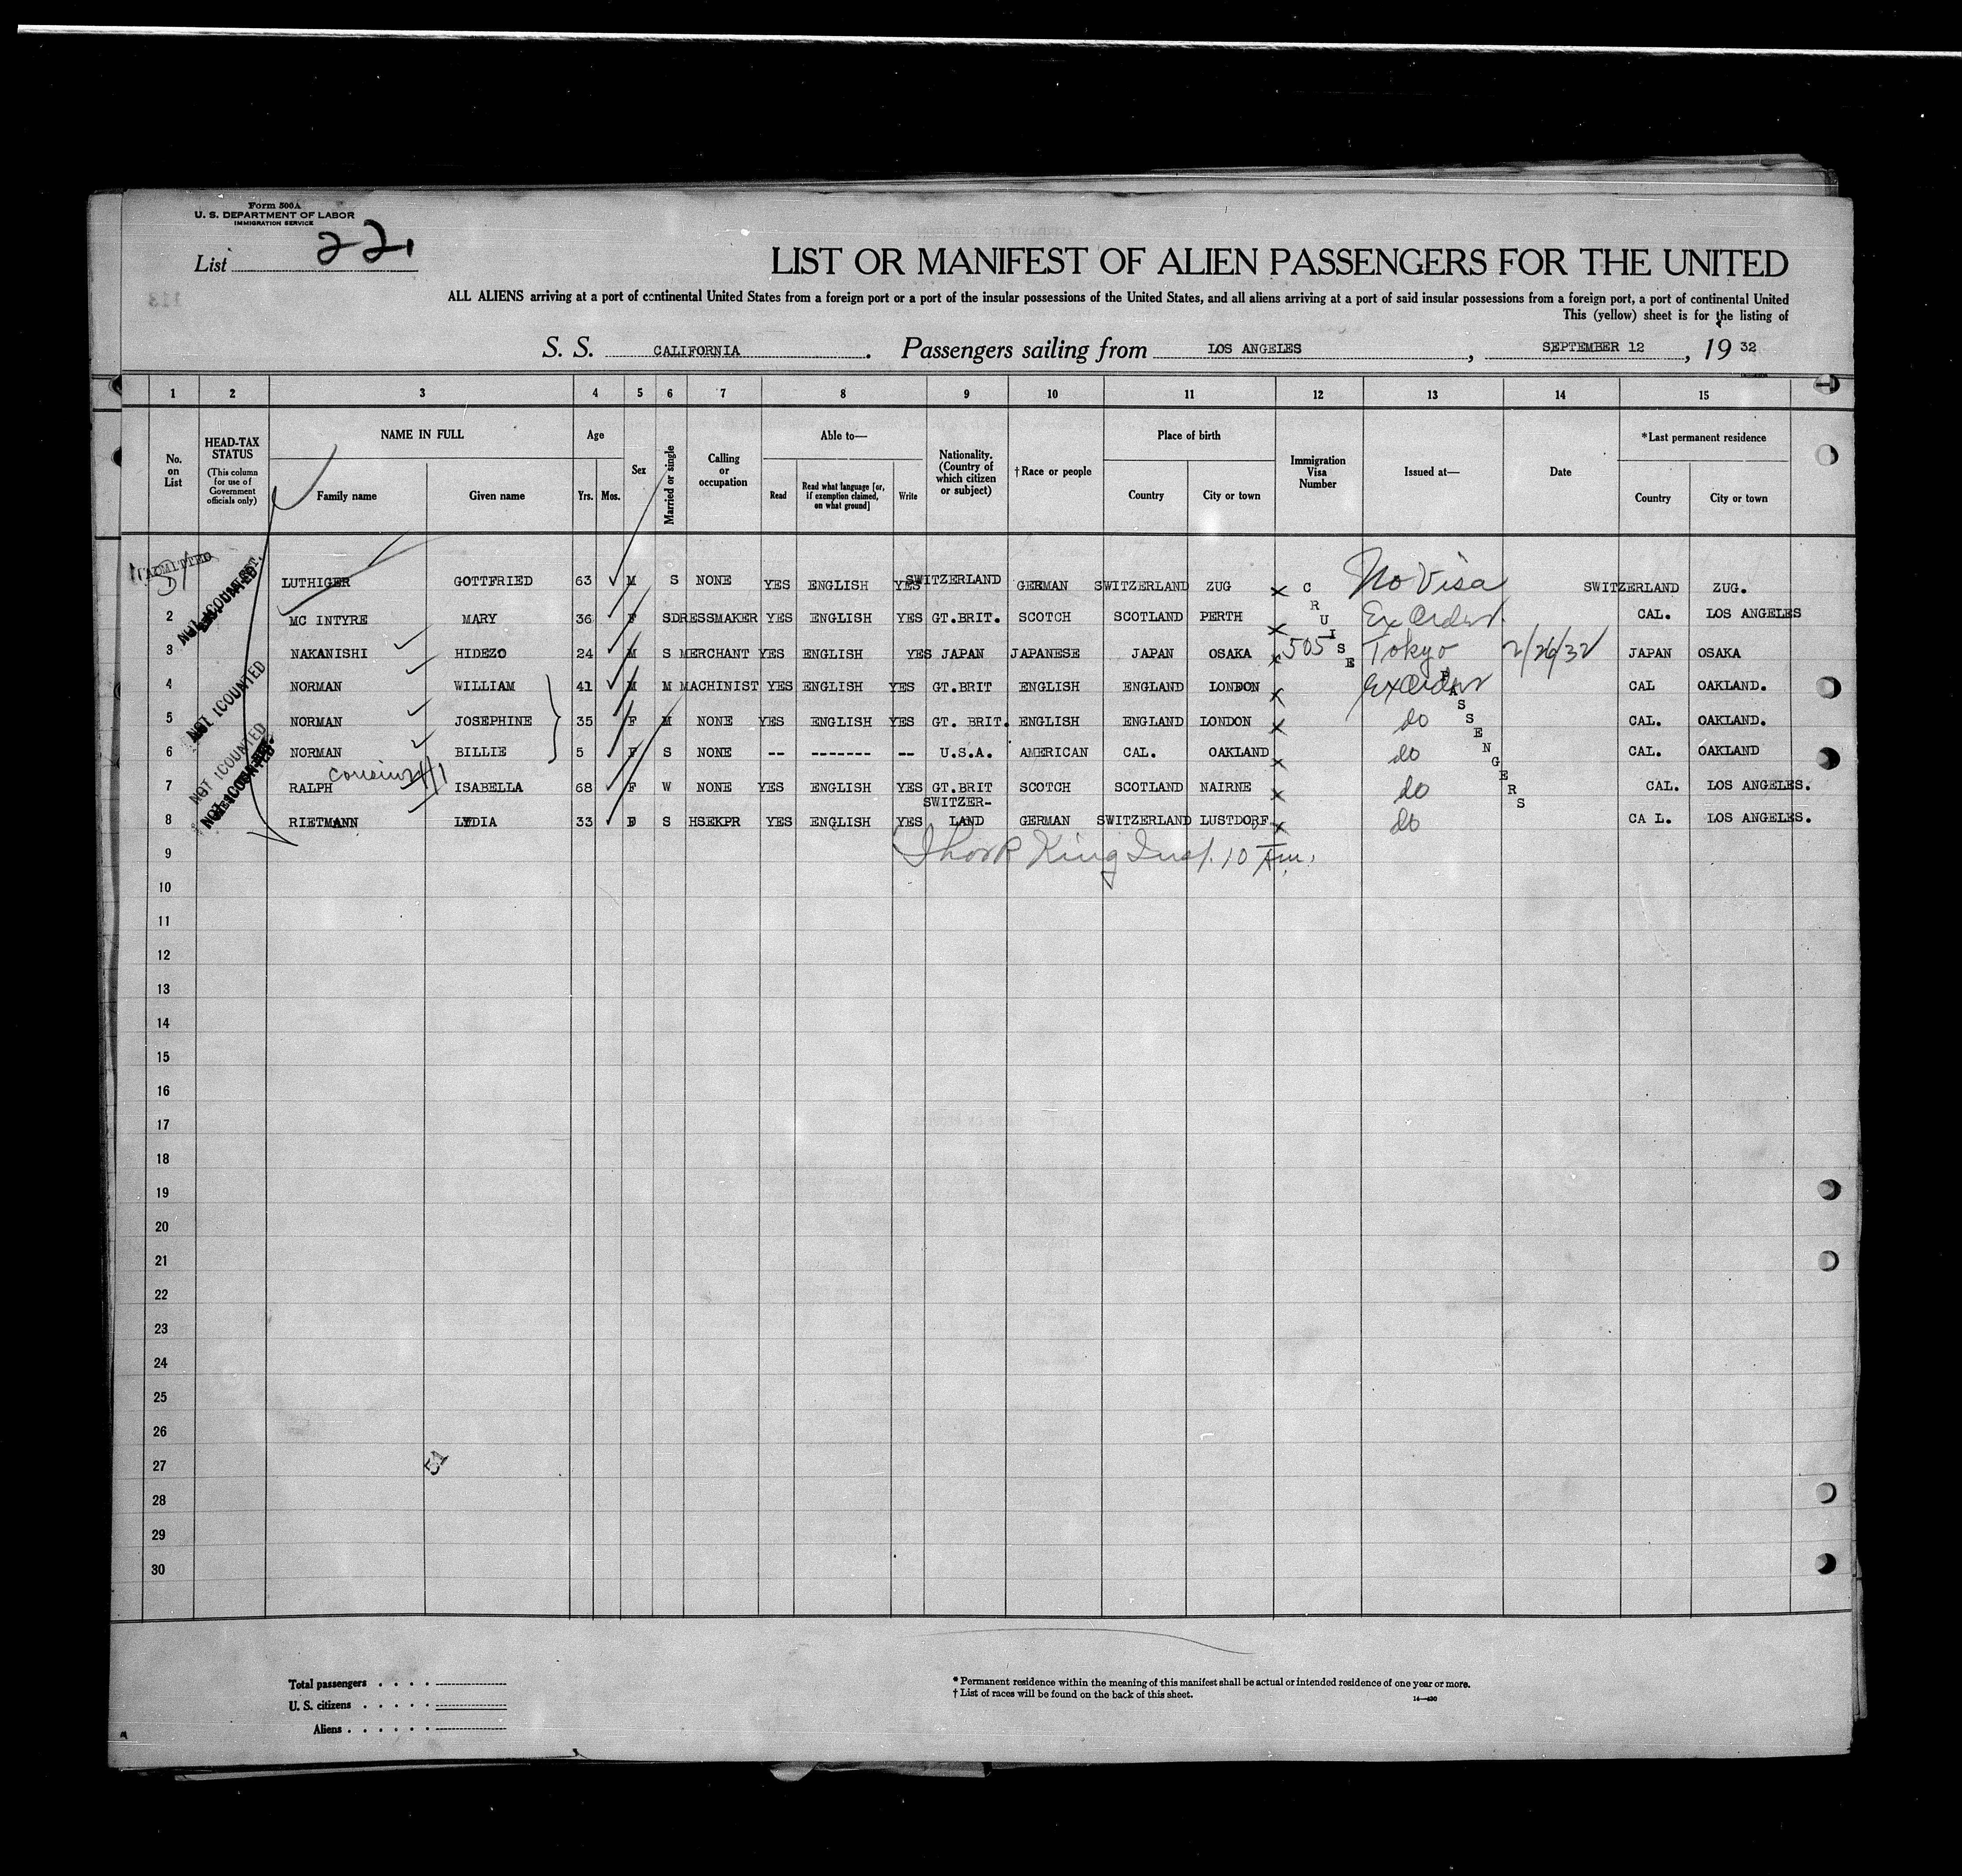 Form 500A
U. S. DEPARTMENT OF LABOR
IMMIGRATION SERVICE
List 22
LIST OR MANIFEST OF ALIEN PASSENGERS FOR THE UNITED
ALL ALIENS arriving at a port of continental United States from a foreign port or a port of the insular possessions of the United States, and all aliens arriving at a port of said insular possessions from a foreign port, a port of continental United
This (yellow) sheet is for the listing of
S. S. CALIFORNIA. Passengers sailing from LOS ANGELES, SEPTEMBER 12, 19 32
1 2 3 4 5 6 7 8 9 10 11 12 13 14 15
No. on List
HEAD-TAX STATUS
(This column for use of Government officials only)
NAME IN FULL
Family name
Given name
Age
Yrs.
Mos.
Sex
Married or single
Calling or occupation
Able to—
Read
Read what language [or, if exemption claimed, on what ground]
Write
Nationality. (Country of which citizen or subject)
† Race or people
Place of birth
Country
City or town
Immigration Visa Number
Issued at—
Date
*Last permanent residence
Country
City or town
ADMITTED
LUTHIGER GOTTFRIED 63 M S NONE YES ENGLISH YES SWITZERLAND GERMAN SWITZERLAND ZUG No Visa SWITZERLAND ZUG.
2 MC INTYRE MARY 36 F S DRESSMAKER YES ENGLISH YES GT.BRIT. SCOTCH SCOTLAND PERTH Ex Order CAL. LOS ANGELES
3 NAKANISHI HIDEZO 24 M S MERCHANT YES ENGLISH YES JAPAN JAPANESE JAPAN OSAKA 505 Tokyo 2/26/32 JAPAN OSAKA
4 NORMAN WILLIAM 41 M M MACHINIST YES ENGLISH YES GT.BRIT ENGLISH ENGLAND LONDON Ex Order CAL OAKLAND.
5 NORMAN JOSEPHINE 35 F M NONE YES ENGLISH YES GT. BRIT. ENGLISH ENGLAND LONDON do CAL. OAKLAND.
6 NORMAN BILLIE 5 F S NONE -- ------- -- U.S.A. AMERICAN CAL. OAKLAND do CAL. OAKLAND
cousin
7 RALPH ISABELLA 68 F W NONE YES ENGLISH YES GT.BRIT SCOTCH SCOTLAND NAIRNE do CAL. LOS ANGELES.
8 RIETMANN LYDIA 33 F S HSEKPR YES ENGLISH YES SWITZER-LAND GERMAN SWITZERLAND LUSTDORF do CA L. LOS ANGELES.
CRUISE PASSENGERS
NOT COUNTED
NOT COUNTED
NOT COUNTED
NOT COUNTED
9 King Insp. 10 Am.
10
11
12
13
14
15
16
17
18
19
20
21
22
23
24
25
26
27
51
28
29
30
Total passengers . . . .
U. S. citizens . . . . .
Aliens . . . . . .
* Permanent residence within the meaning of this manifest shall be actual or intended residence of one year or more.
† List of races will be found on the back of this sheet.
14—430